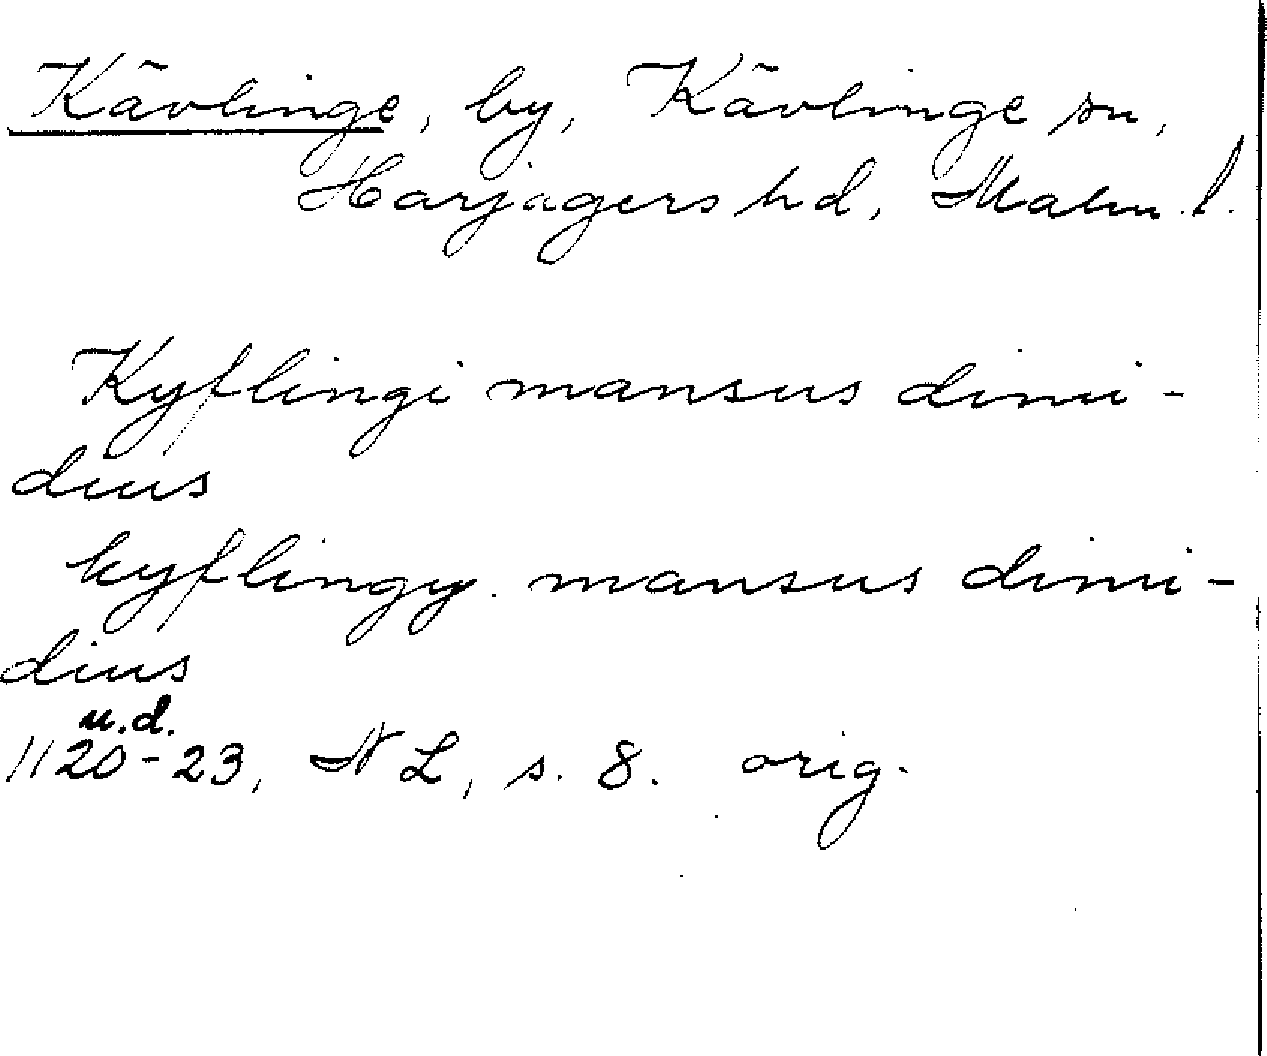 Kävlinge, by, Kävlinge sn,
Harjagers hd, Malm. l.
Kyflingi mansus dimi-
dius
kyflingy. mansus dimi-
dius
u.d.
1120-23, NL, s. 8. orig.